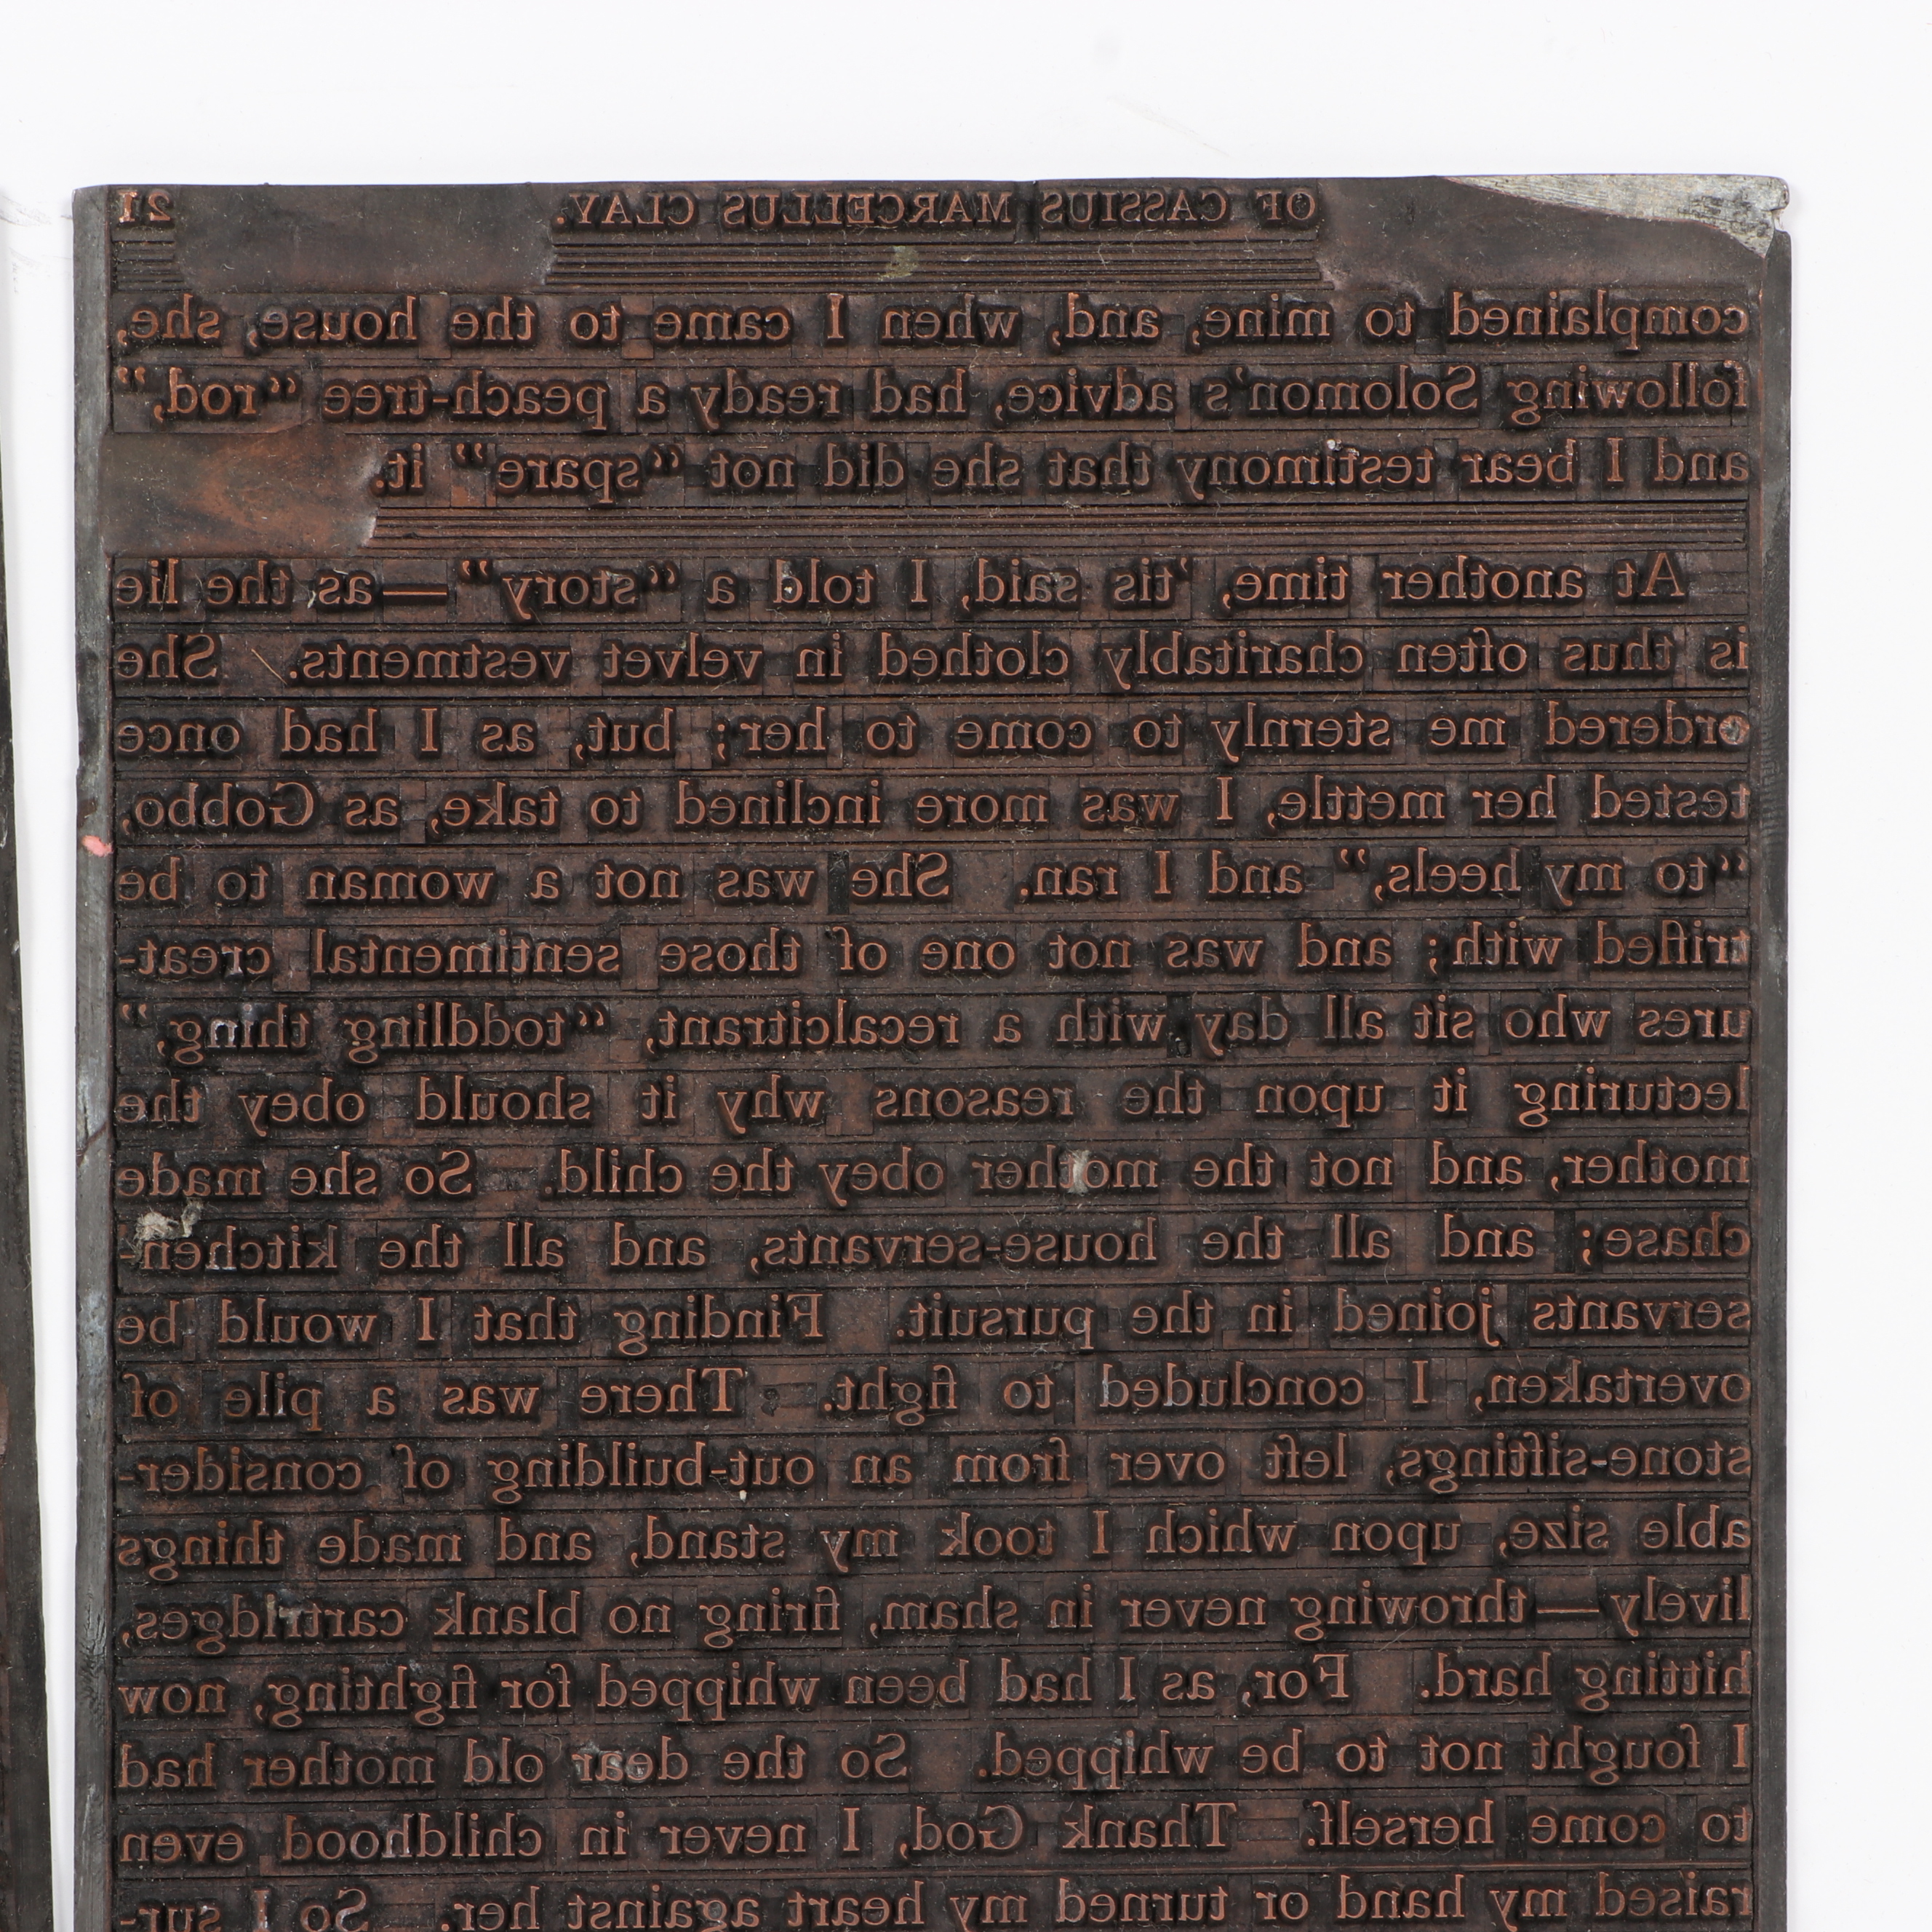 OF CASSIUS MARCELLUS CLAY. 21
complained to mine, and, when I came to the house, she,
following Solomon's advice, had ready a peach-tree “rod,”
and I bear testimony that she did not “spare” it.
At another time, 'tis said, I told a “story”—as the lie
is thus often charitably clothed in velvet vestments. She
ordered me sternly to come to her; but, as I had once
tested her mettle, I was more inclined to take, as Gobbo,
“to my heels,” and I ran. She was not a woman to be
trifled with; and was not one of those sentimental creat-
ures who sit all day with a recalcitrant, “toddling thing,”
lecturing it upon the reasons why it should obey the
mother, and not the mother obey the child. So she made
chase; and all the house-servants, and all the kitchen-
servants joined in the pursuit. Finding that I would be
overtaken, I concluded to fight. There was a pile of
stone-siftings, left over from an out-building of consider-
able size, upon which I took my stand, and made things
lively—throwing never in sham, firing no blank cartridges,
hitting hard. For, as I had been whipped for fighting, now
I fought not to be whipped. So the dear old mother had
to come herself. Thank God, I never in childhood even
raised my hand or turned my heart against her. So I sur-